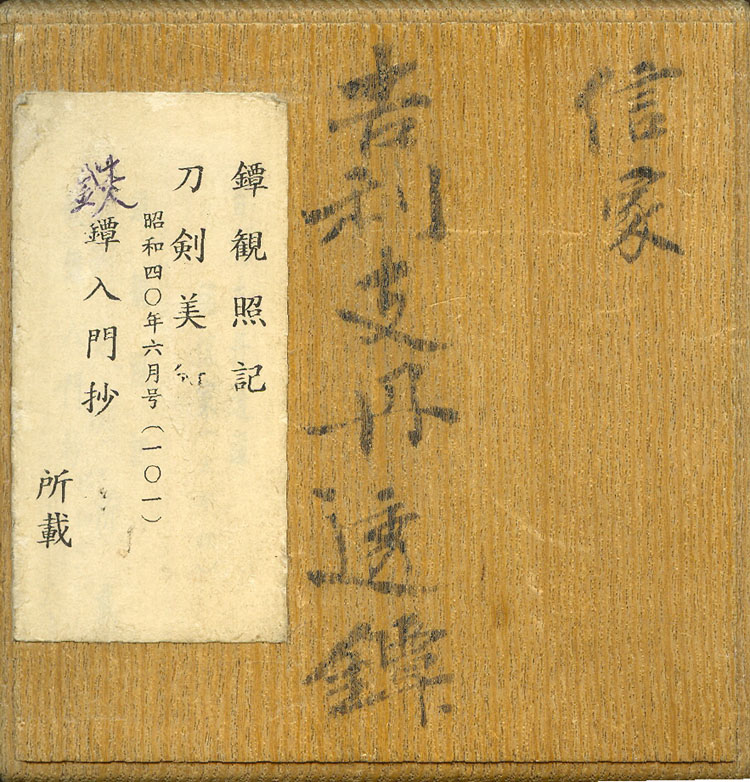 信家
吉利支丹透鐔
鐔観照記
刀剣美術
昭和四〇年六月号(一〇一)
鉄鐔入門抄
所載